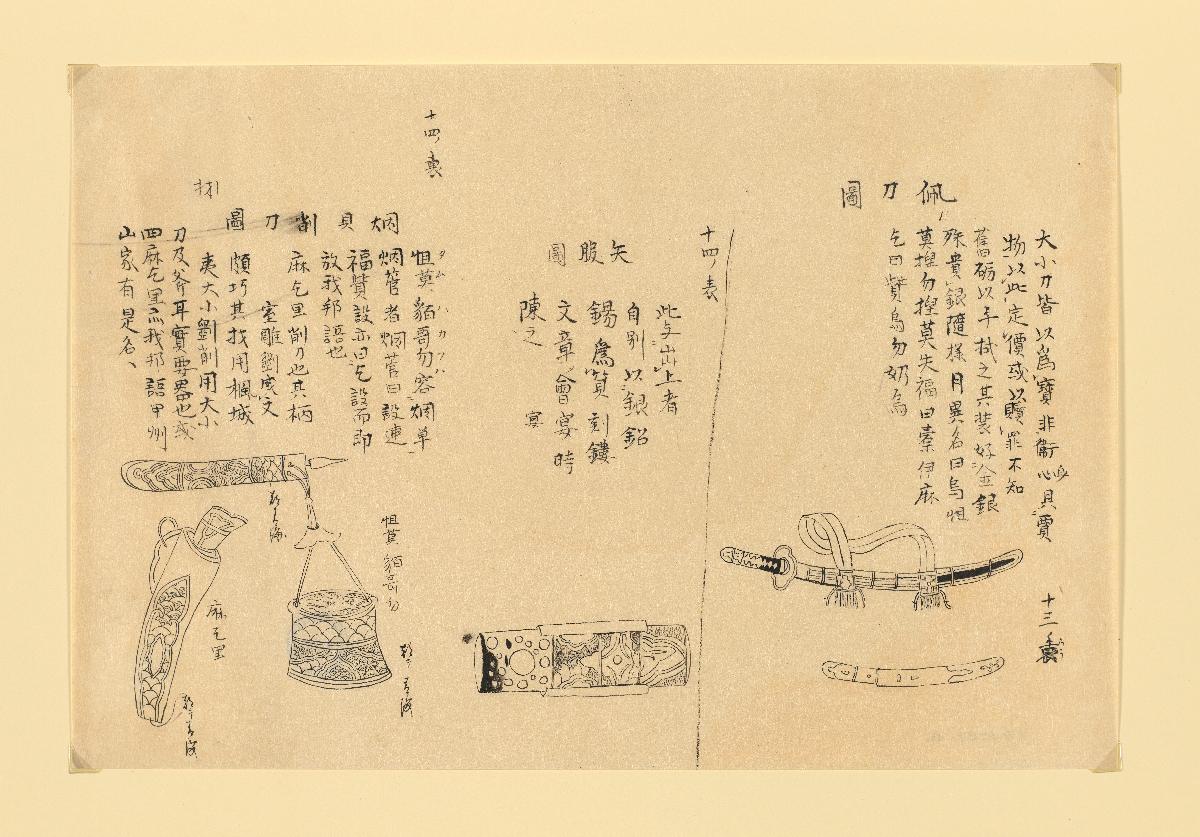 十三裏
佩刀圖
大小刀皆以爲寶非衞心具賈
物以此定價或以贖罪不知
舊砺以手拭之其装好金銀
殊貴銀隨様月異名曰烏怚
莫揑勿揑莫失福曰橐伊麻
乞曰贊烏勿奶烏
十四表
矢服圖
此与出上者
自别以銀鉛
錫爲質刻鏤
文章會宴時
陳之 宴
十四裏
烟具削刀圖
怚莫貊哥勿容烟草
烟管者烟菅曰設連
福贊設亦曰乞設而即
放我邦語也
麻乞里削刀也其柄
室雕劉成文
頗巧其找用楓城
夷大小劉削用大小
刀及斧耳寶要器也或
四麻乞里而我邦語甲州
山家有是名、
怚莫貊哥勿
麻乞里